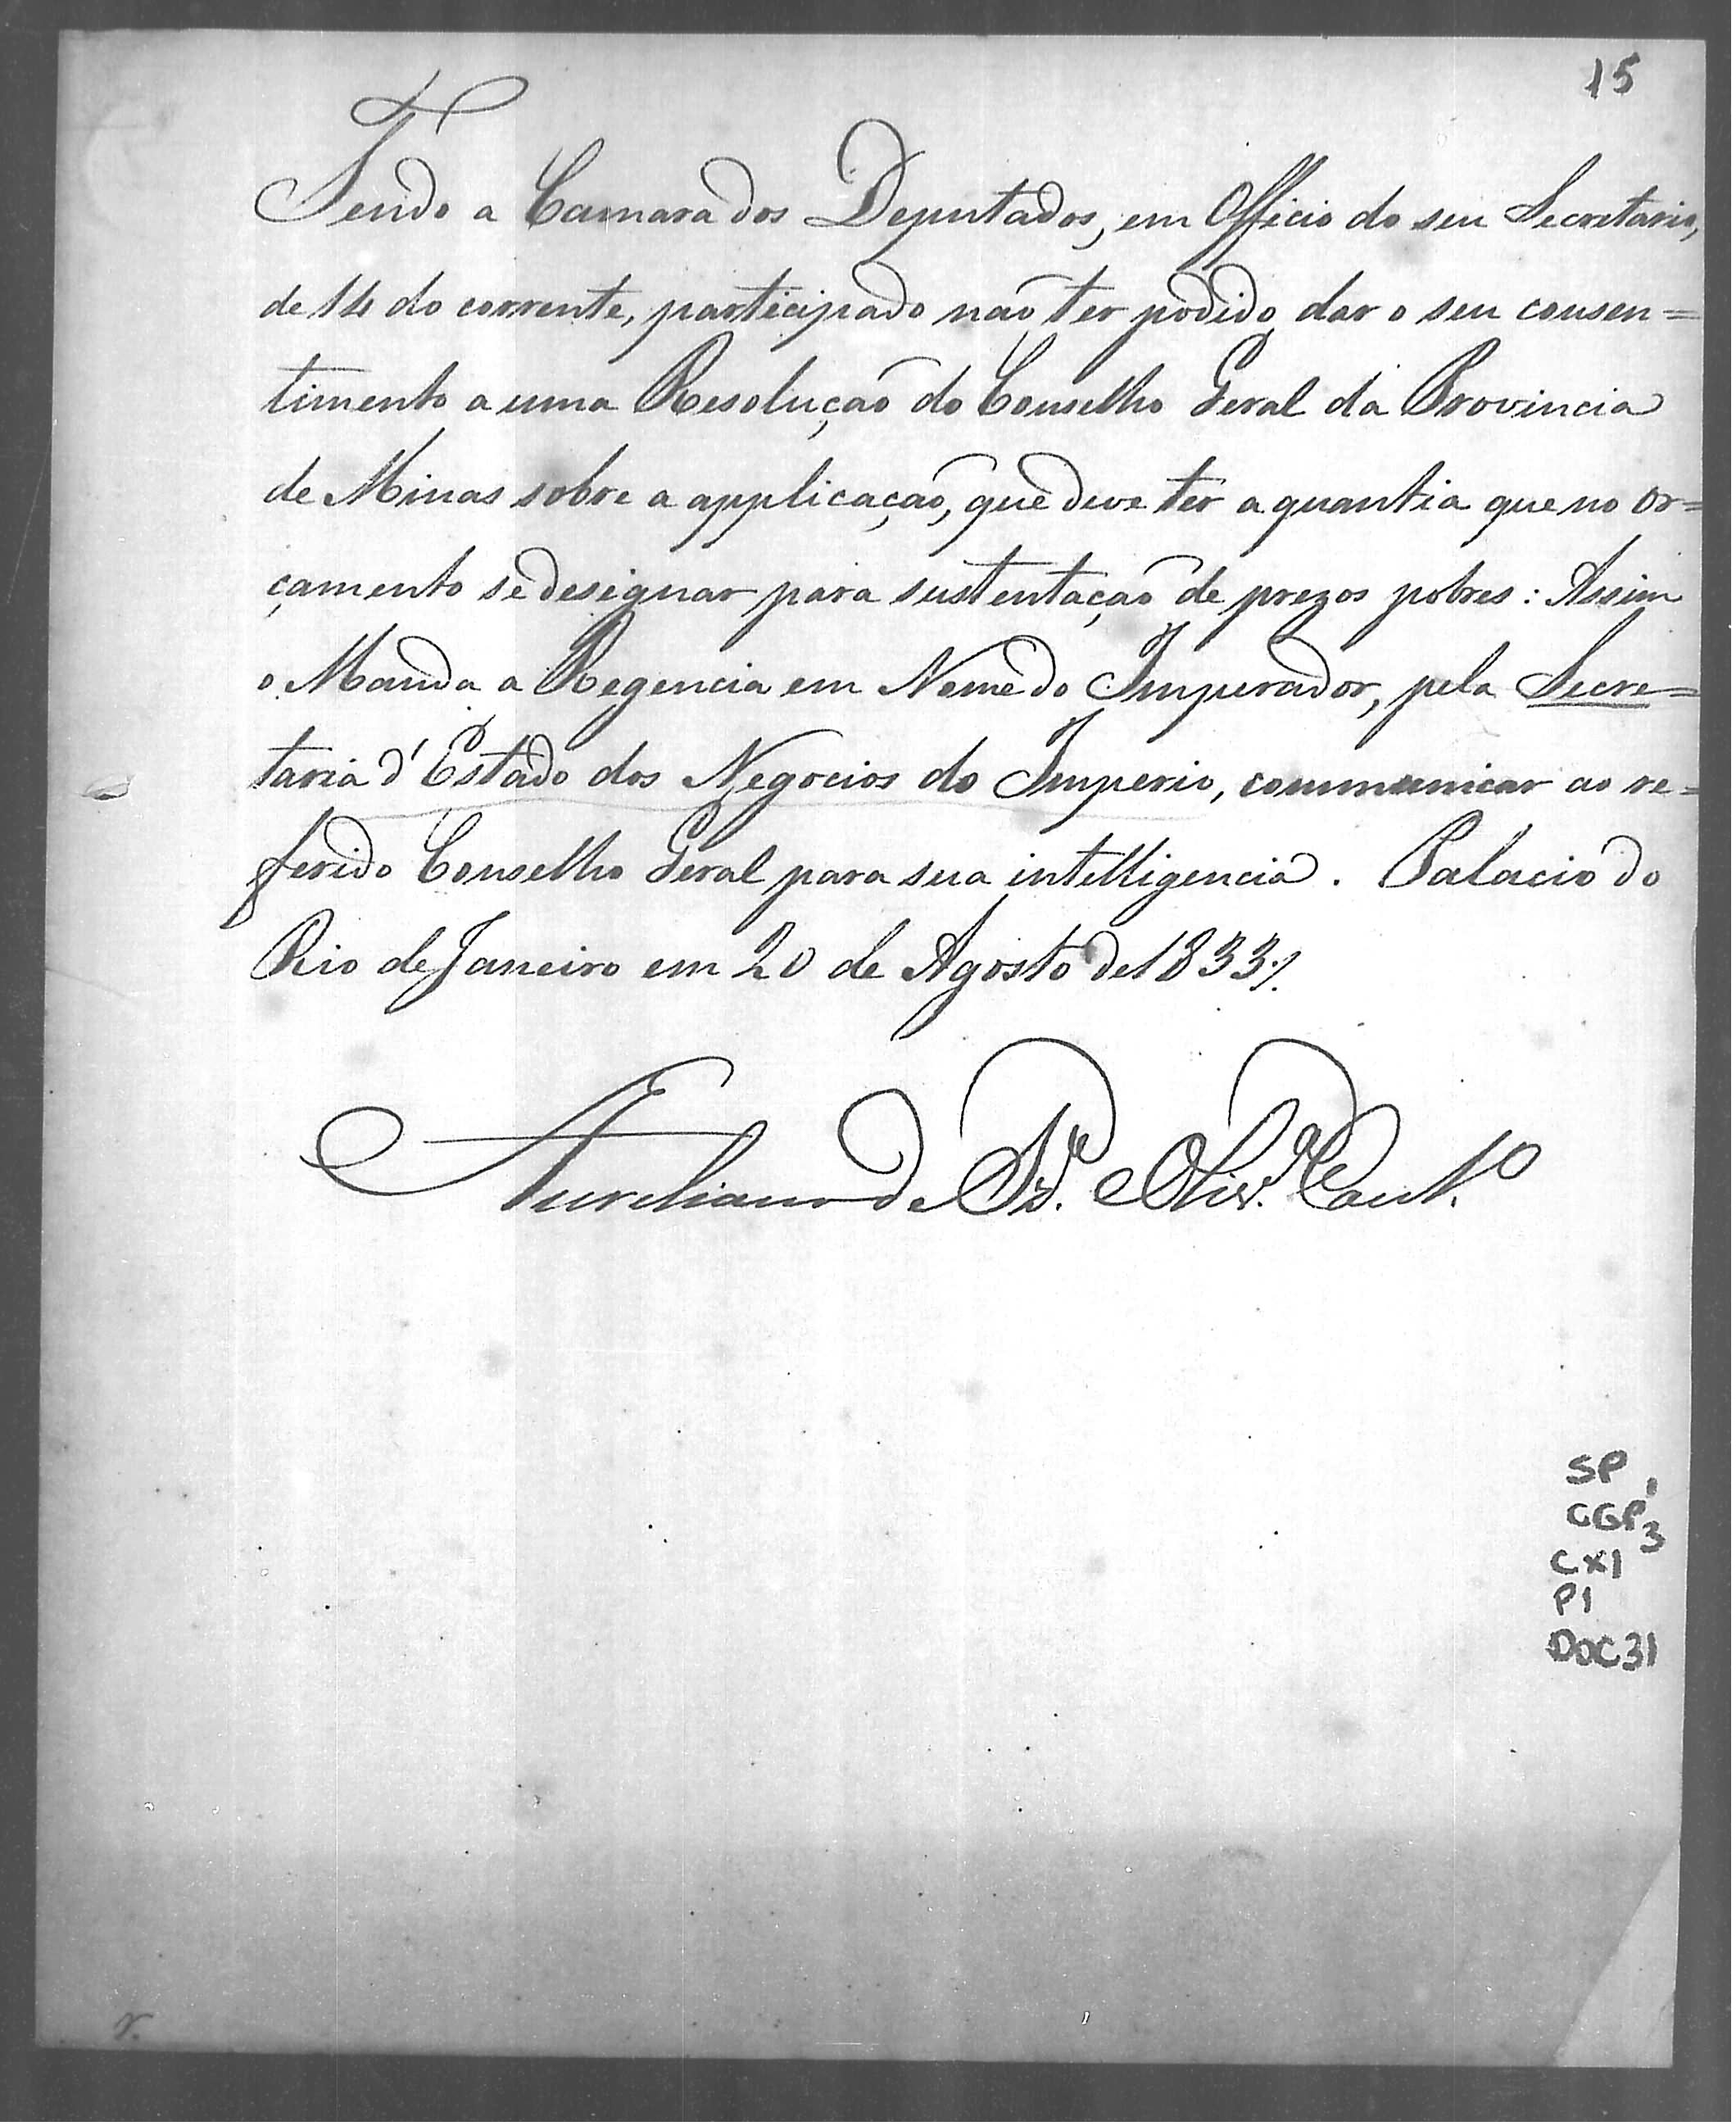 15
Tendo a Camara dos Deputados, em Officio do seu Secretario,
de 14 do corrente, participado não ter podido dar o seu consen=
timento a uma Resolução do Conselho Geral da Provincia
de Minas sobre a applicação, que deve ter a quantia que no or=
çamento se designar para sustentação de prezos pobres: Assim
o Manda a Regencia em Nome do Imperador, pela Secre=
taria d'Estado dos Negocios do Imperio, communicar ao re=
ferido Conselho Geral para sua intelligencia. Palacio do
Rio de Janeiro em 20 de Agosto de 1833./.
Aureliano de Sz.ª e Oliv.ª Cout.º
SP
CGP
1
3
CX1
P1
DOC31